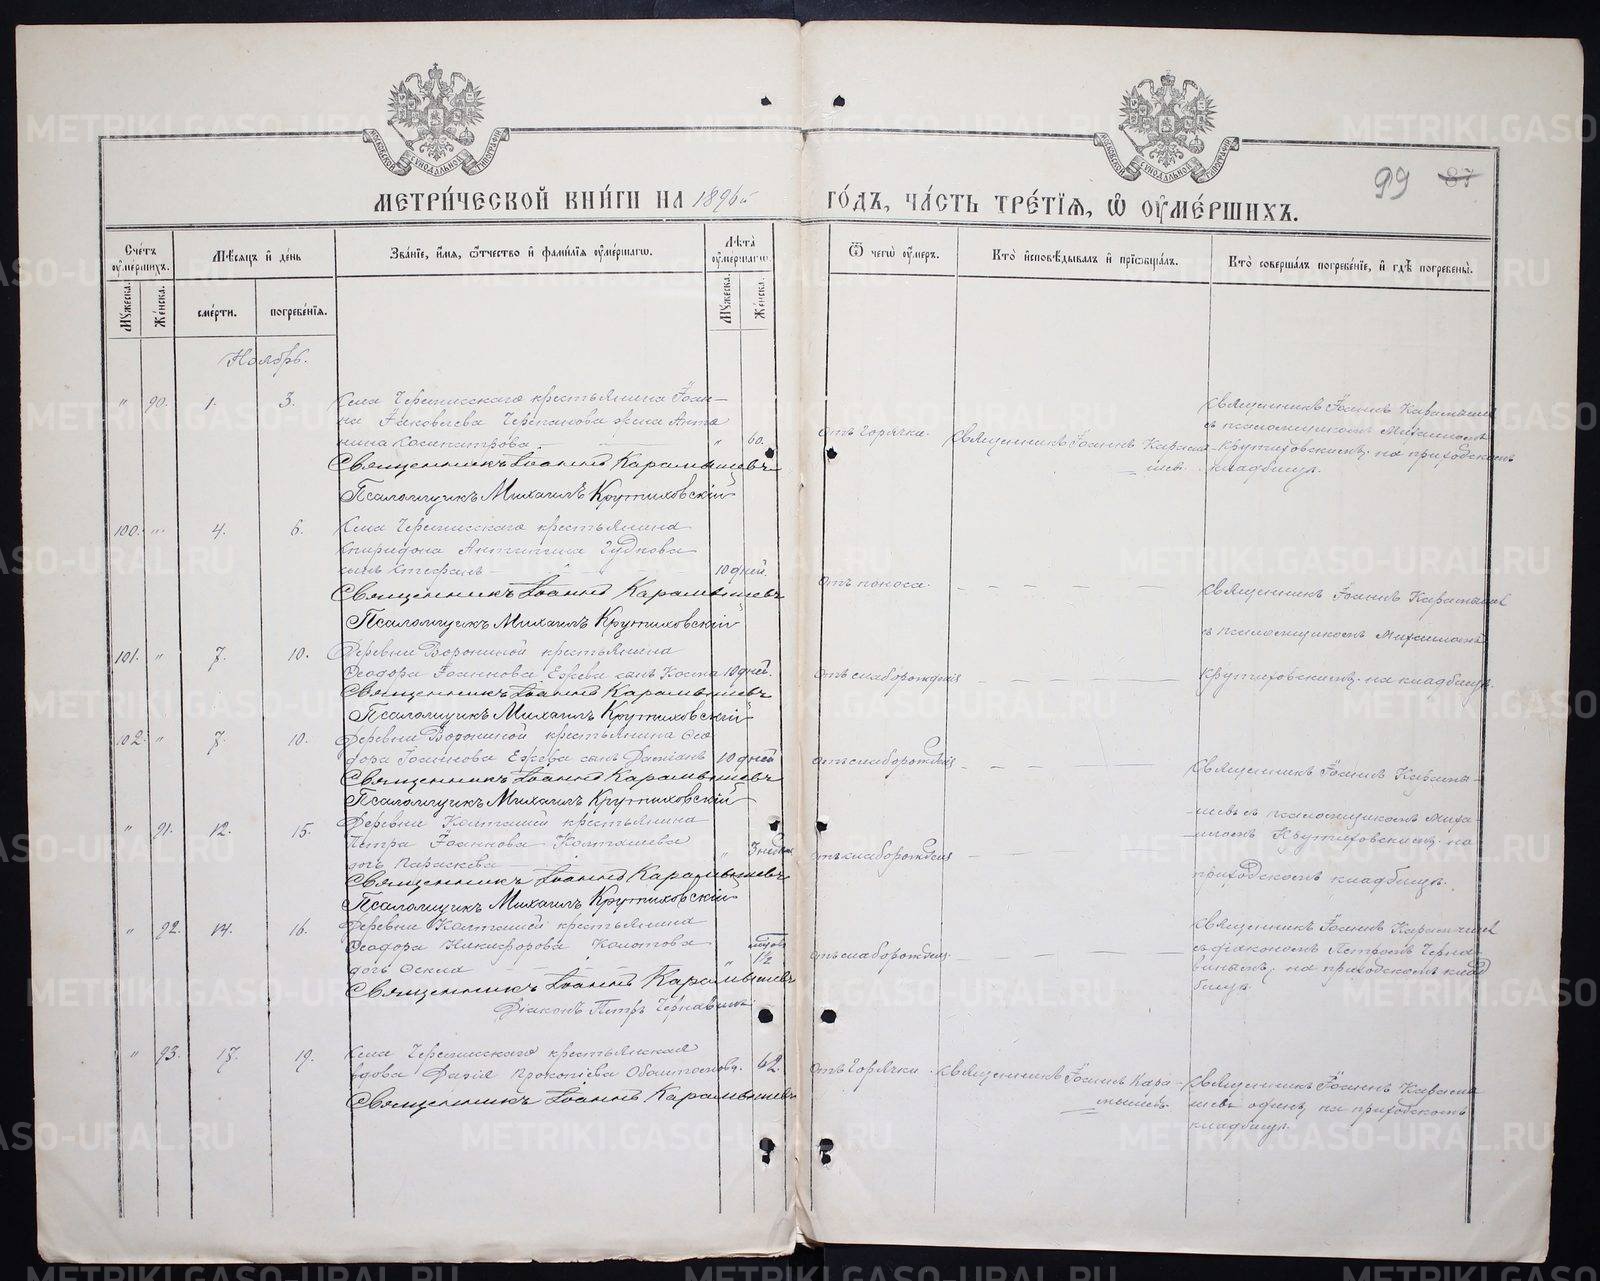 МЕТРИ́ЧЕСКОЙ КНИ́ГИ НА 1896й ГО́ДЪ, ЧА́СТЬ ТРЕ́ТІЯ, Ѿ ОУМЕ́РШИХЪ.
99 87
Счетъ оумершихъ.
Мѣсяцъ и день
Званіе, имя, ѿтчество и фамилія оумершагѡ.
Лѣта оумершагѡ.
Ѿ чегѡ оумеръ.
Кто исповѣдывалъ и пріѡбщалъ.
Кто совершалъ погребеніе, и гдѣ погребены.
Мужеска.
Женска.
смерти.
погребенія.
Мужеска.
Женска.
Ноябрь.
" 90. 1. 3.
Села Черемисскаго крестьянина Іоан-
на Іаковлева Черепанова жена Анто
нина Сосипатрова " 60.
Священникъ Іоаннъ Карамышевъ
Псаломщикъ Михаилъ Крутиховскій
отъ горячки.
Священникъ Іоаннъ Карамы-
шевъ.
Священникъ Іоаннъ Карамышевъ
съ псаломщикомъ Михаиломъ
Крутиховскимъ, на приходскомъ
кладбищѣ.
100. " 4. 6.
Села Черемисскаго крестьянина
Спиридона Антипина Гудкова
сынъ Стефанъ 10 дней.
Священникъ Іоаннъ Карамышевъ
Псаломщикъ Михаилъ Крутиховскій
отъ поноса.
Священникъ Іоаннъ Карамышев
съ псаломщикомъ Михаиломъ
101. " 7. 10.
Деревни Ворониной крестьянина
Ѳеодора Іоаннова Ежева сынъ Косма 10 дней.
Священникъ Іоаннъ Карамышевъ
Псаломщикъ Михаилъ Крутиховскій
отъ слаборожденія
Крутиховскимъ, на кладбищѣ.
102. " 7. 10.
Деревни Ворониной крестьянина Ѳео
дора Іоаннова Ежева сынъ Даміанъ 10 дней
Священникъ Іоаннъ Карамышевъ
Псаломщикъ Михаилъ Крутиховскій
отъ слаборожденія
Священникъ Іоаннъ Карамы-
шевъ съ псаломщикомъ Миха
иломъ Крутиховскимъ, на
приходскомъ кладбищѣ.
" 91. 12. 15.
Деревни Колташей крестьянина
Петра Іоаннова Колташева
дочь Параскева " 3 недѣли
Священникъ Іоаннъ Карамышевъ
Псаломщикъ Михаилъ Крутиховскій
отъ слаборожденія
" 92. 14. 16.
Деревни Колташей крестьянина
Ѳеодора Никифорова
дочь " 1½
Священникъ Іоаннъ Карамышевъ
Діаконъ Петръ Чернавинъ.
отъ слаборожденія
Священникъ Іоаннъ Карамышев
съ діакономъ Петромъ Черна-
винымъ, на приходскомъ клад
бищѣ.
" 93. 17. 19.
Села Черемисскаго крестьянская
вдова Прокопіева 62.
Священникъ Іоаннъ Карамышевъ
отъ горячки.
Священникъ Іоаннъ Кара-
мышевъ.
Священникъ Іоаннъ Карамы
шевъ одинъ, на приходскомъ
кладбищѣ.
METRIKI.GASO-URAL.RU